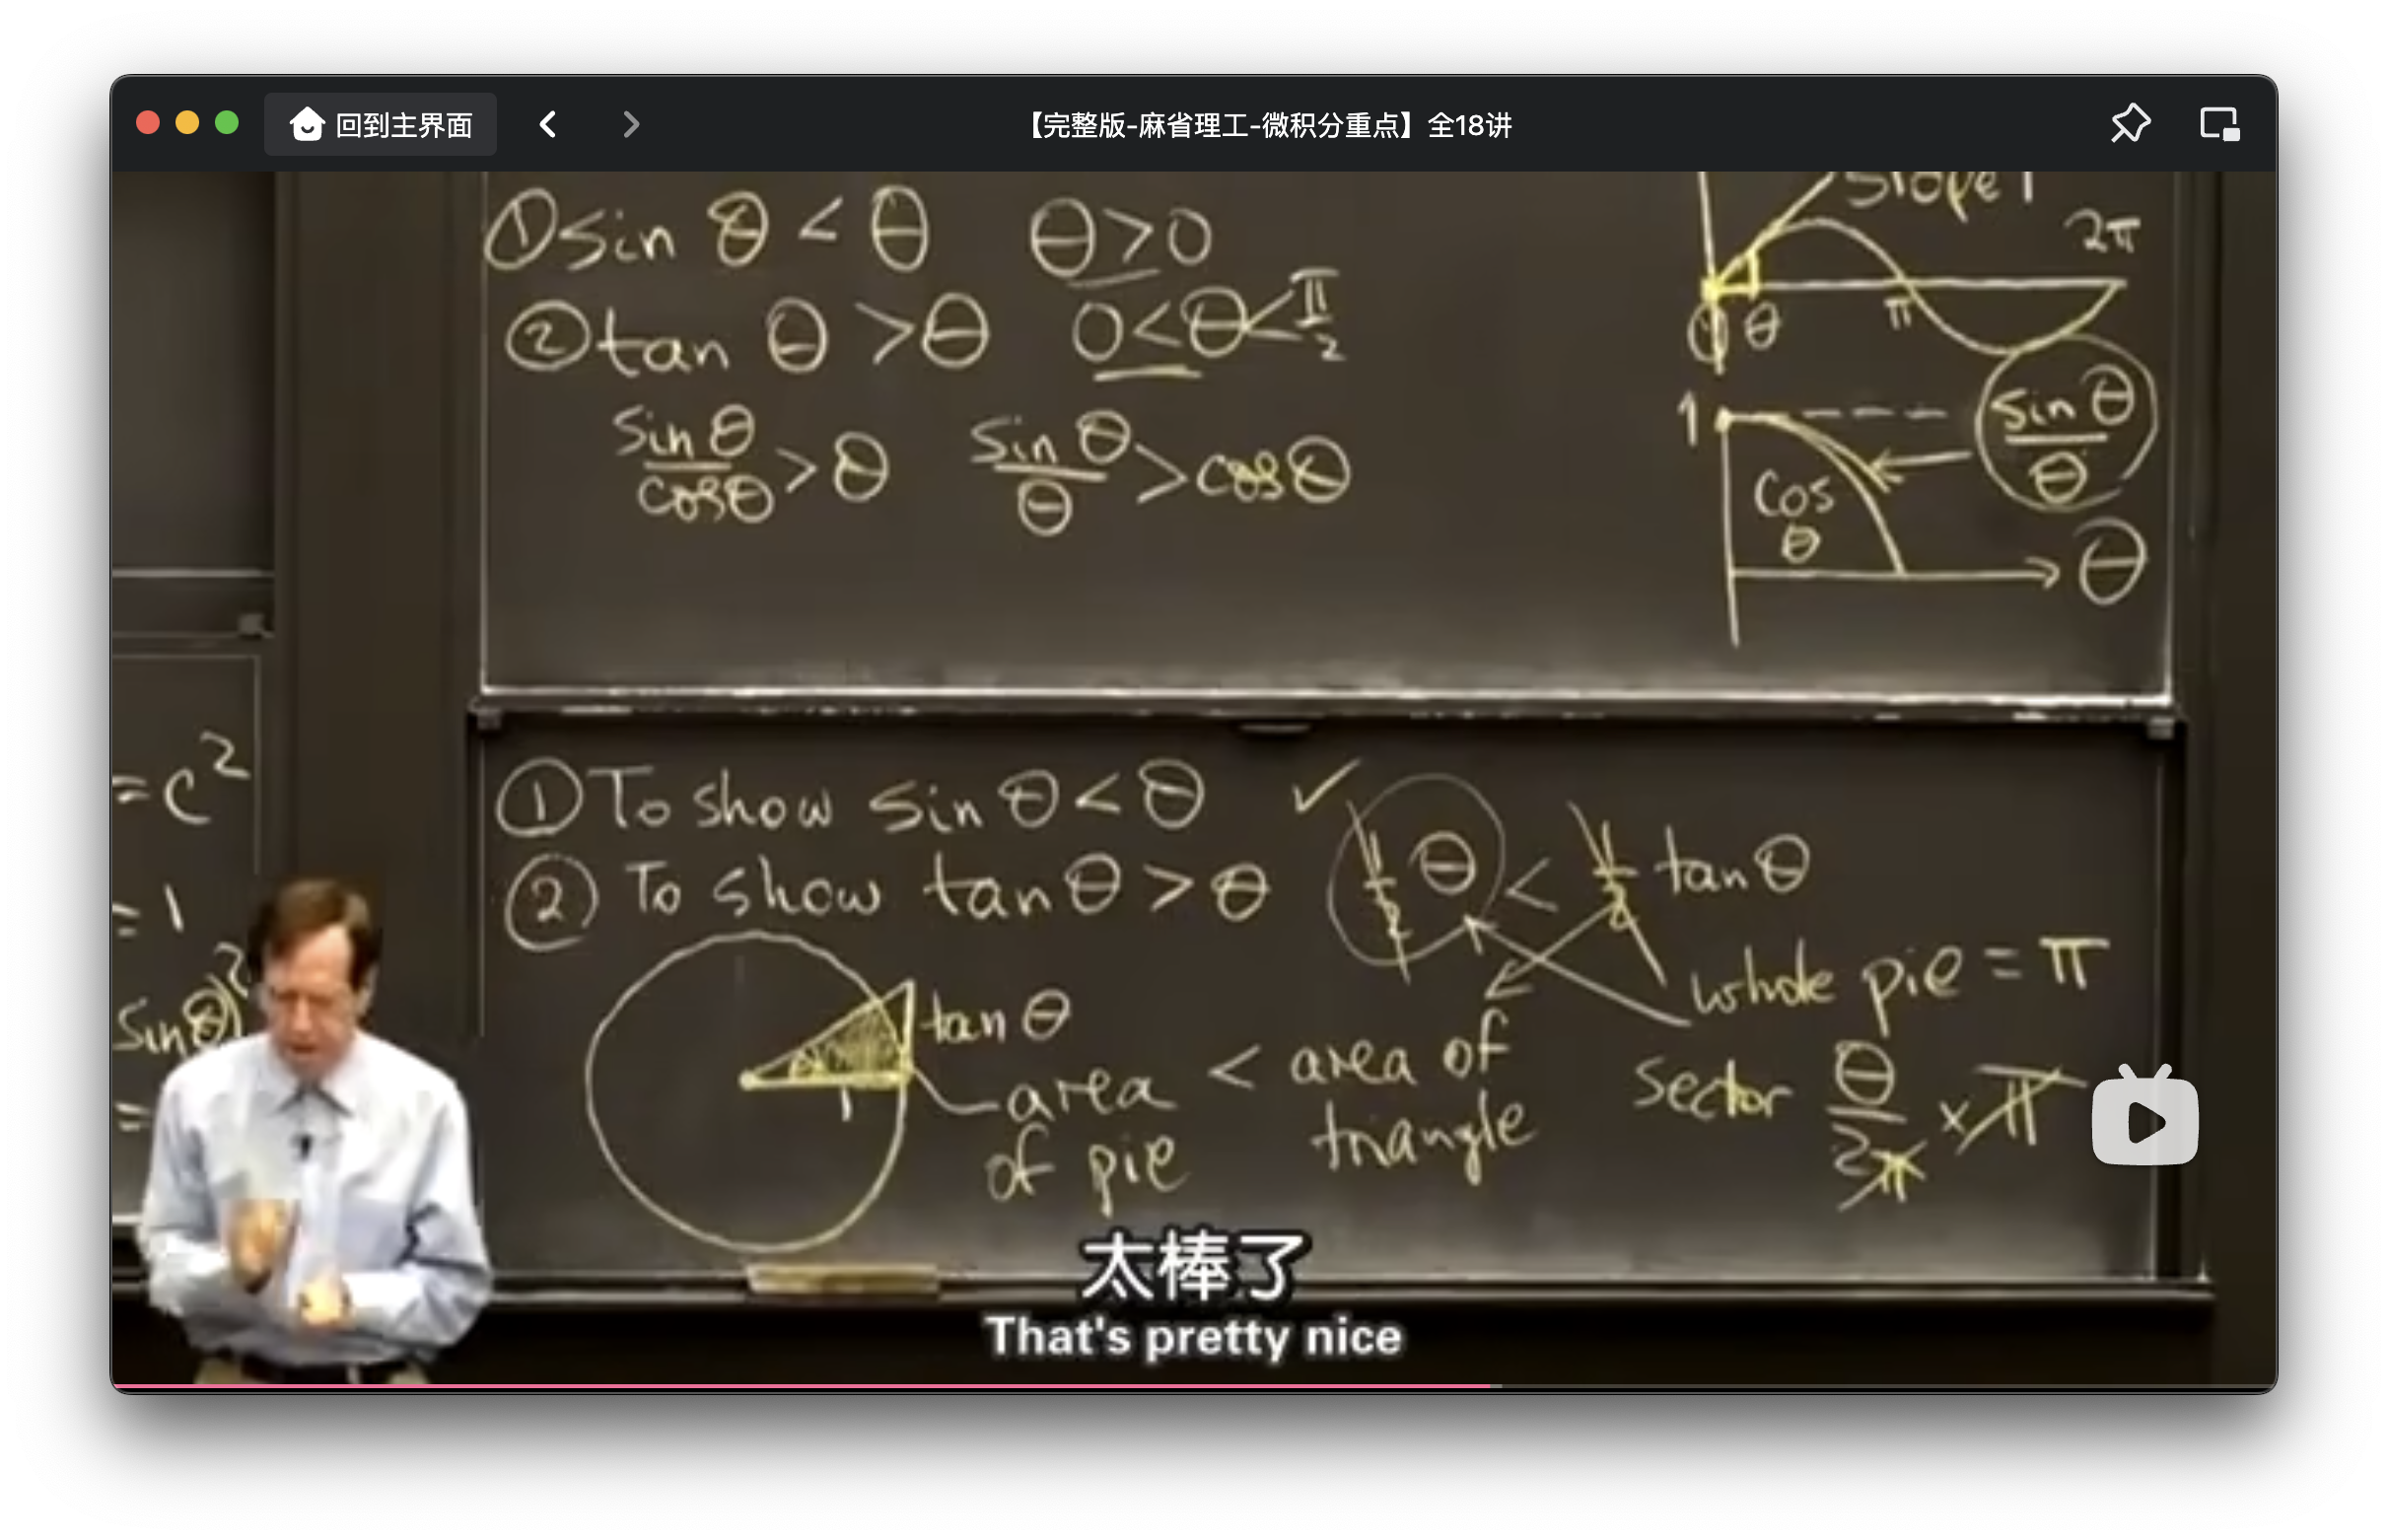 回到主界面
【完整版-麻省理工-微积分重点】全18讲
① sin θ < θ θ > 0
② tan θ > θ 0 < θ < π/2
sin θ/cos θ > θ sin θ/θ > cos θ
slope 1
2π
0 θ π
1
sin θ/θ
cos θ
θ
= c²
= 1
sin θ)²
=
① To show sin θ < θ ✓
② To show tan θ > θ
1/2 θ < 1/2 tan θ
tan θ
θ
1
area of pie < area of triangle
whole pie = π
sector θ/2π × π
太棒了
That's pretty nice